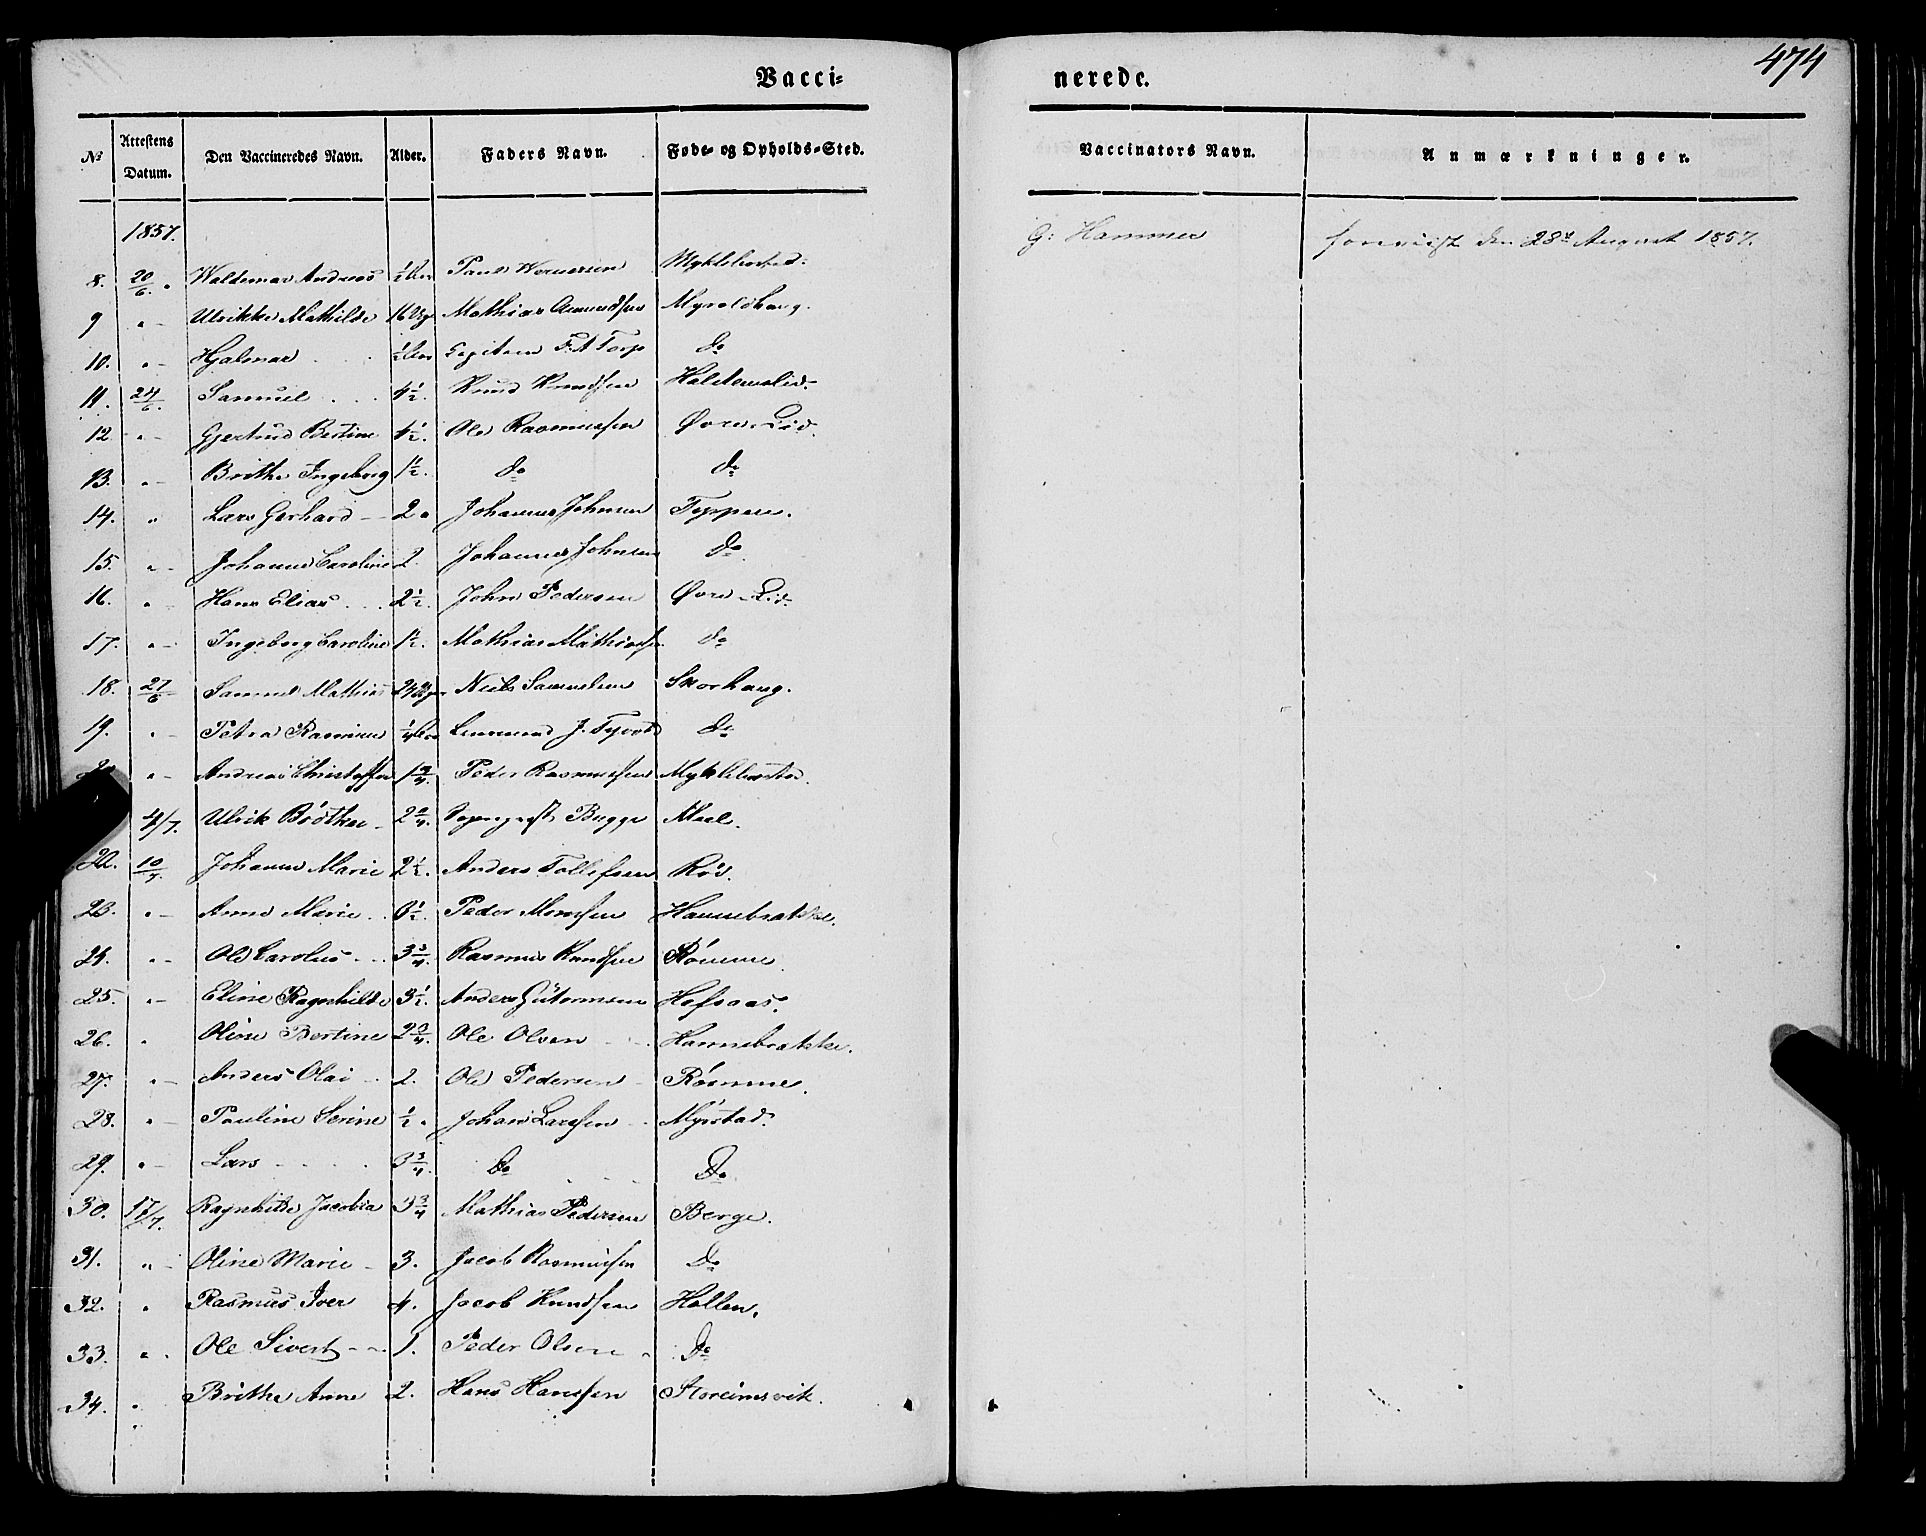 474
Vacci- nerede.
№ Attestens Datum. Den Vaccineredes Navn. Alder. Faders Navn. Føde- og Opholds-Sted. Vaccinators Navn. Anmærkninger.
1857. G: Hammer forevist den 28de August 1857.
8. 20/6. Waldemar Andreas 1/2 Paul Wernersen Myklebostad.
9 " – Ulrikke Mathilde 16 Mathias Amundsen Myroldhaug.
10. " – Hjalmar 1/2 Capitain F. A Torp do
11. 24/6. Samuel 4 1/2. Knud Knudsen
12. " – Gjertrud Bertine 4 1/2. Ole Rasmussen Øvre-Lid.
13. " – Brithe Ingeborg 1 1/2. do do
14. " Lars Gerhard – 2. Johannes Johnsen Toppen.
15. " – Johanne Caroline 2. Johannes Johnsen do
16. " Hans Elias 2 1/2. John Pedersen Øvre-Lid.
17. " – Ingeborg Caroline 1 1/2. Mathias Mathiassen do
18. 27/6 Samuel Mathias 24 Niels Samuelsen Skorhaug.
19. " – Petra Rasmine 1/4 J. do
" – Andreas Christoffer 1 3/4. Peder Rasmussen Myklebostad.
4/7. Ulrik 2 3/4. Bugge
22. 10/7. Johanne Marie 2 1/2. Anders Tollefsen Röv.
23. " – Anne Marie 0 1/2. Peder Monsen Hannebrække.
24. " – Ole Carolus 3 3/4. Rasmus Knudsen
25. " – Eline Ragnhilde 3 1/2. Anders Gutormsen Hofsaas.
26. " Oline Bertine 2 3/4. Ole Olsen Hannebrække.
27. " – Anders Olai 2. Ole Pedersen
28. " – Pauline Serine 1/2. Johan Larssen Myrstad.
29. " – Lars 3 3/4. Do Do
30. 17/7. Ragnhilde Jacobia 3 3/4 Mathias Pedersen Berge.
31. " – Oline Marie – 3. Jacob Rasmussen Do
32. " Rasmus Iver 4. Jacob Knudsen Hollen.
33. " . Ole Sivert 1. Peder Olsen Do
34. " Brithe Anne 2. Hans Hanssen Storeimsvik.